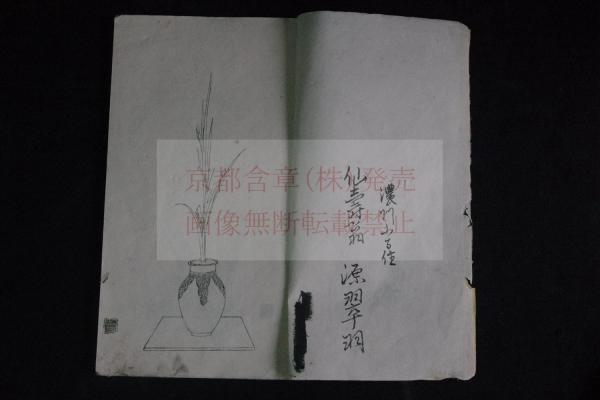 濃州
仙壽翁 源翠羽
京都含章(株)発売
画像無断転載禁止